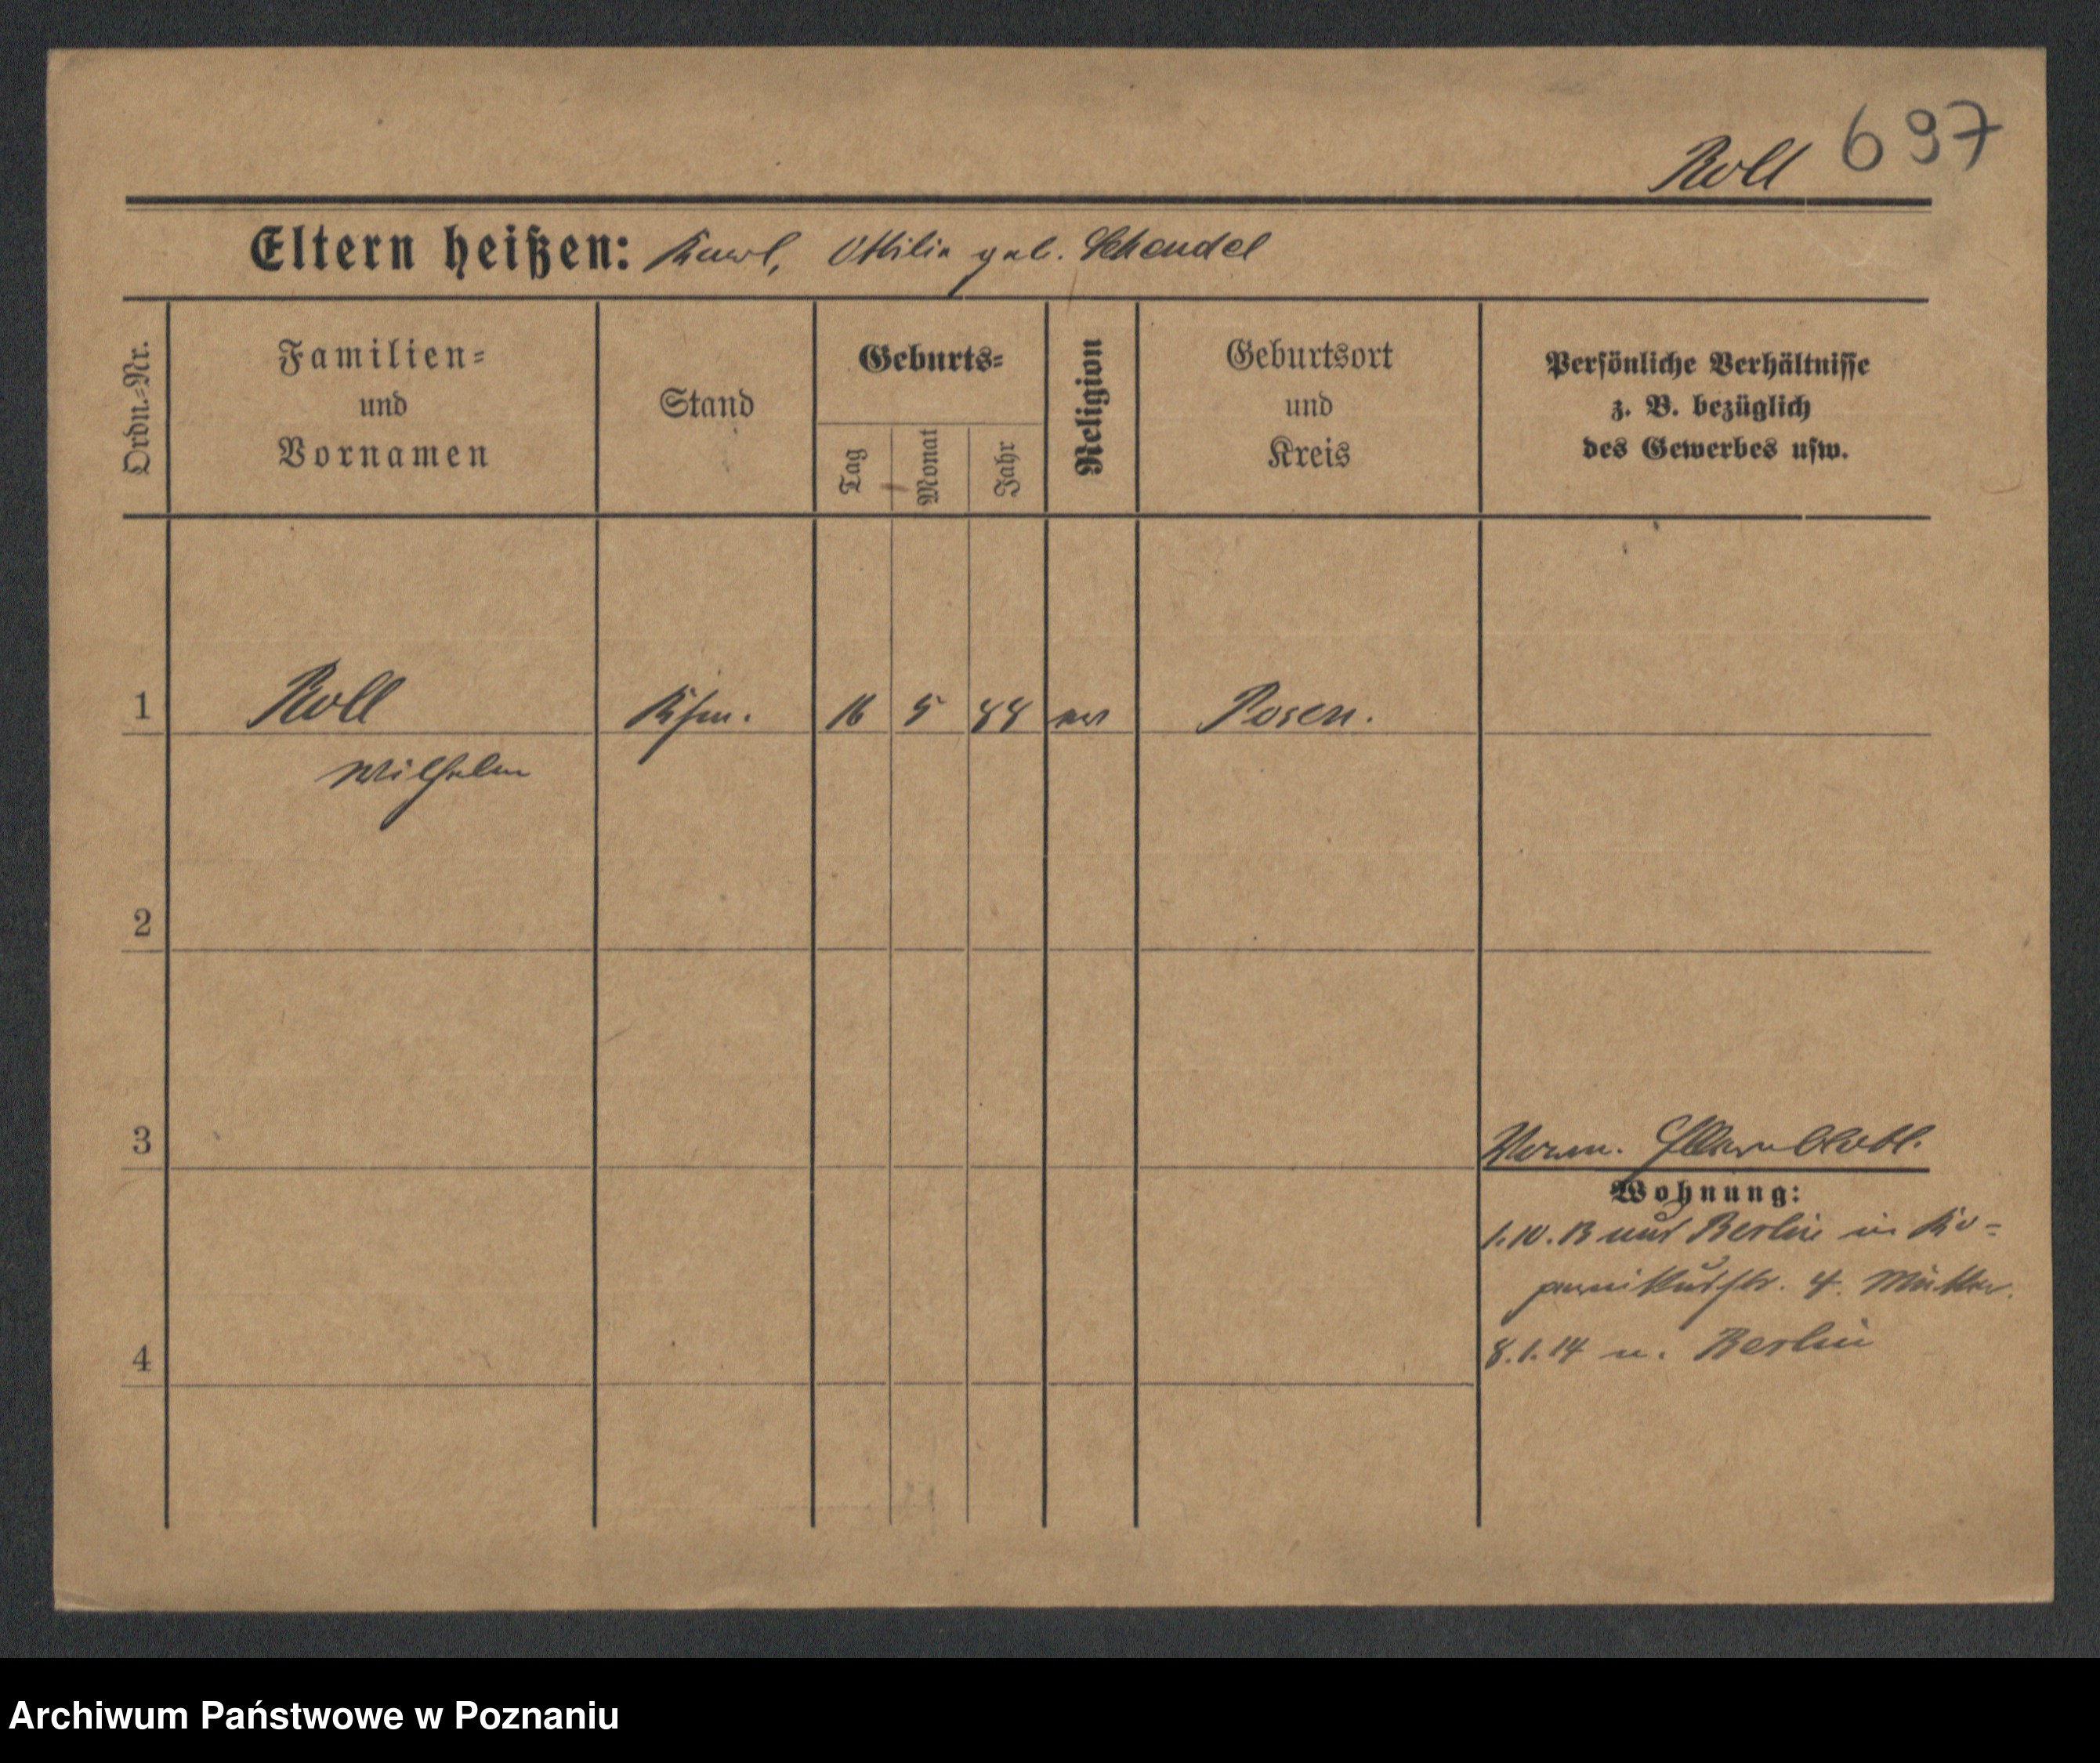 Roll 697
Eltern heißen: Karl, Ottilie geb. Schendel
Ordn.-Nr.
Familien-
und
Vornamen
Stand
Geburts-
Tag
Monat
Jahr
Religion
Geburtsort
und
Kreis
Persönliche Verhältnisse
z. B. bezüglich
des Gewerbes usw.
1 Roll Kfm. 16 5 88 ev Posen.
Wilhelm
2
3
Wohnung:
1.10.13 aus Berlin in Ko-
pernikusstr. 4. Mutter.
8.1.14 n. Berlin
4
Archiwum Państwowe w Poznaniu